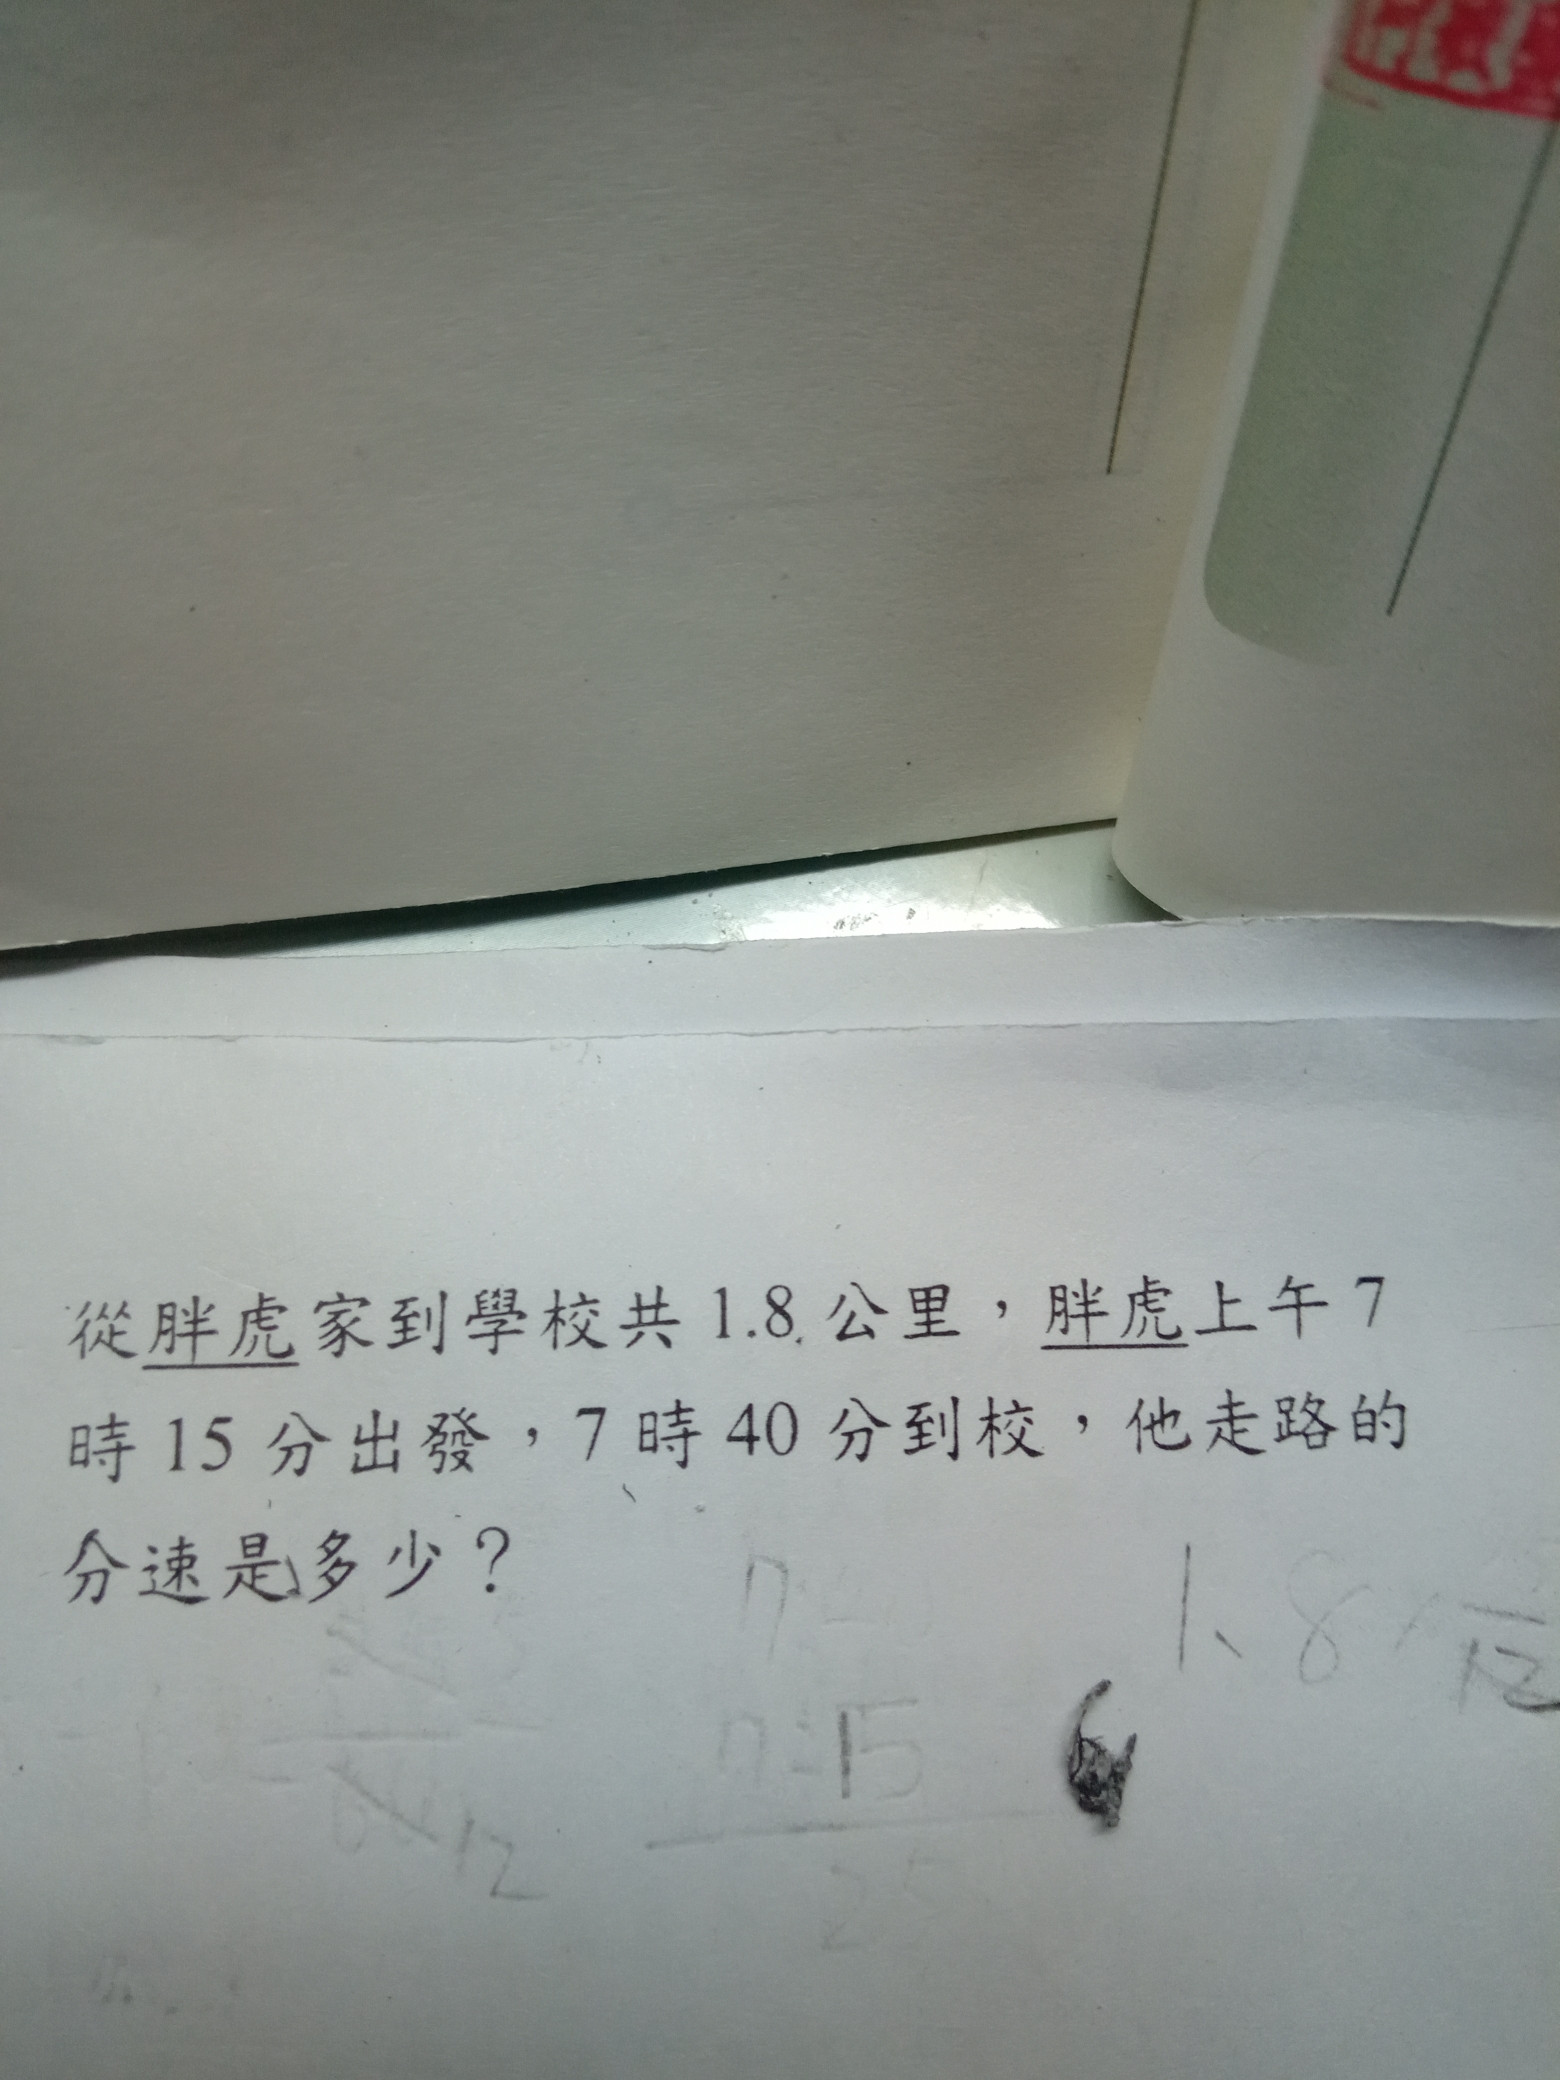 從胖虎家到學校共 1.8 公里，胖虎上午 7
時 15 分出發，7 時 40 分到校，他走路的
分速是多少？
7:15
25
12
1.8
12